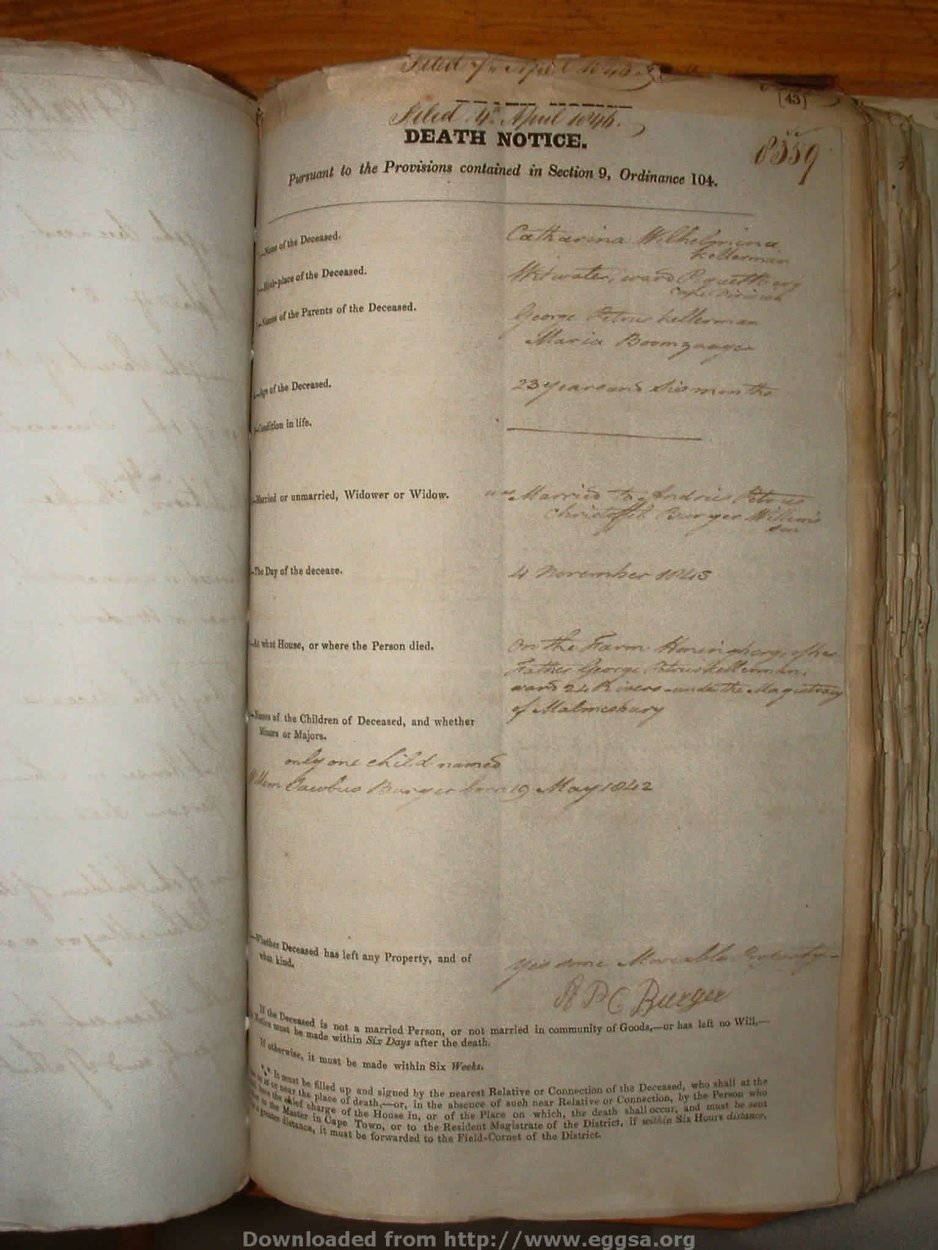 Filed 4th April 1846.
[43]
DEATH NOTICE.
8559
Pursuant to the Provisions contained in Section 9, Ordinance 104.
Name of the Deceased.
Catharina Wilhelmina
Kellerman
Birth-place of the Deceased.
Witwater, ward Piquetberg
Cape Division
Names of the Parents of the Deceased.
George Petrus Kellerman
Maria Boomzaayer
Age of the Deceased.
23 years and six months
Condition in life.
Married or unmarried, Widower or Widow.
was Married to Andries Petrus
Christoffel Burger Willem's
son
The Day of the decease.
4 November 1845
At what House, or where the Person died.
On the Farm of her
Father George Petrus Kellerman,
ward 24 Rivers under the Magistracy
of Malmesbury
Names of the Children of Deceased, and whether
Minors or Majors.
only one child named
Willem Jacobus Burger born 19 May 1842
Whether Deceased has left any Property, and of
what kind.
Yes some Moveable Property
A P C Burger
If the Deceased is not a married Person, or not married in community of Goods,—or has left no Will,—
Notice must be made within Six Days after the death.
If otherwise, it must be made within Six Weeks.
It must be filled up and signed by the nearest Relative or Connection of the Deceased, who shall at the
be at or near the place of death,—or, in the absence of such near Relative or Connection, by the Person who
have the chief charge of the House in, or of the Place on which, the death shall occur, and must be sent
to the Master in Cape Town, or to the Resident Magistrate of the District, if within Six Hours distance,
a greater distance, it must be forwarded to the Field-Cornet of the District.
Downloaded from http://www.eggsa.org